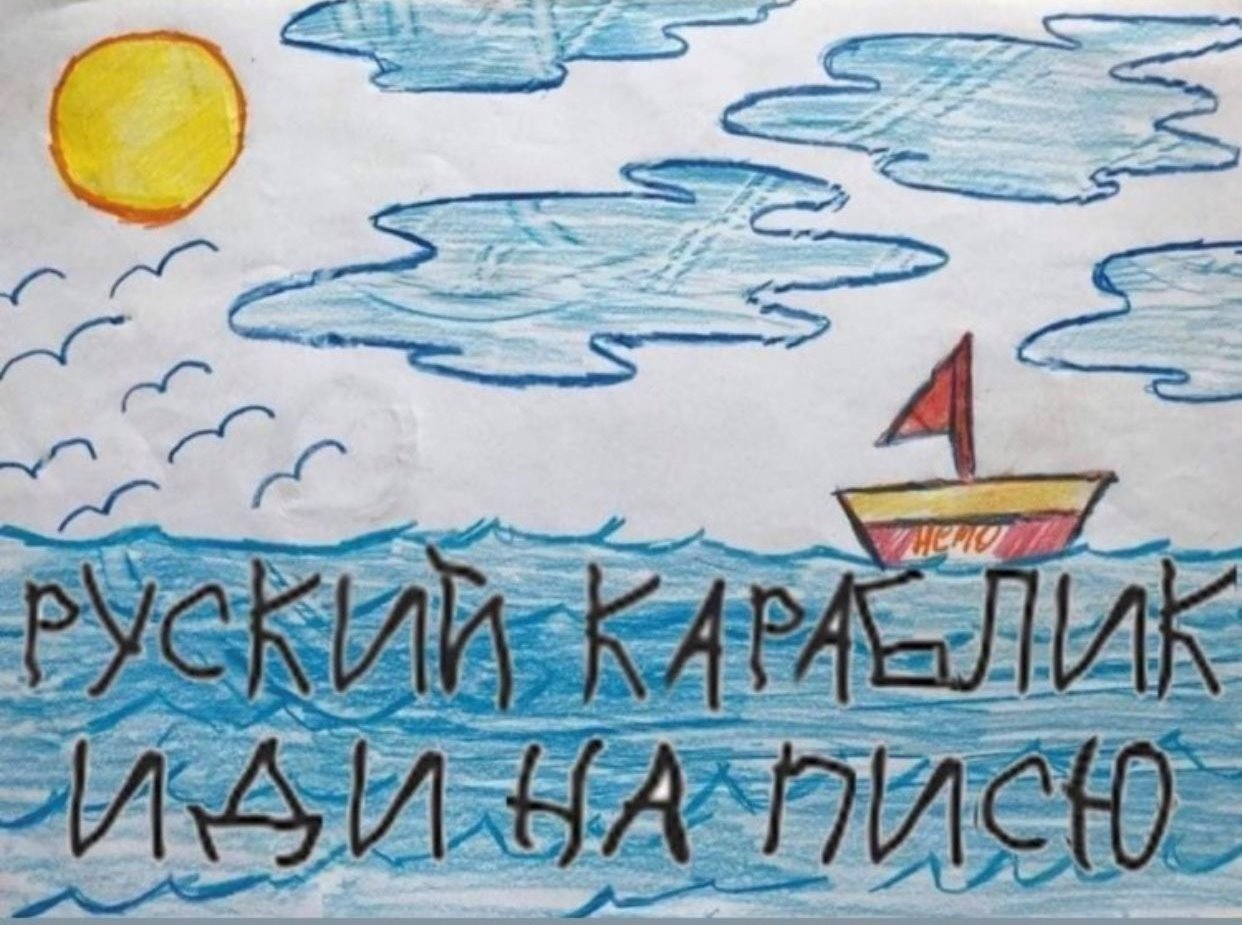 НЕМО
РУСКИЙ КАРАБЛИК
ИДИ НА ПИСЮ